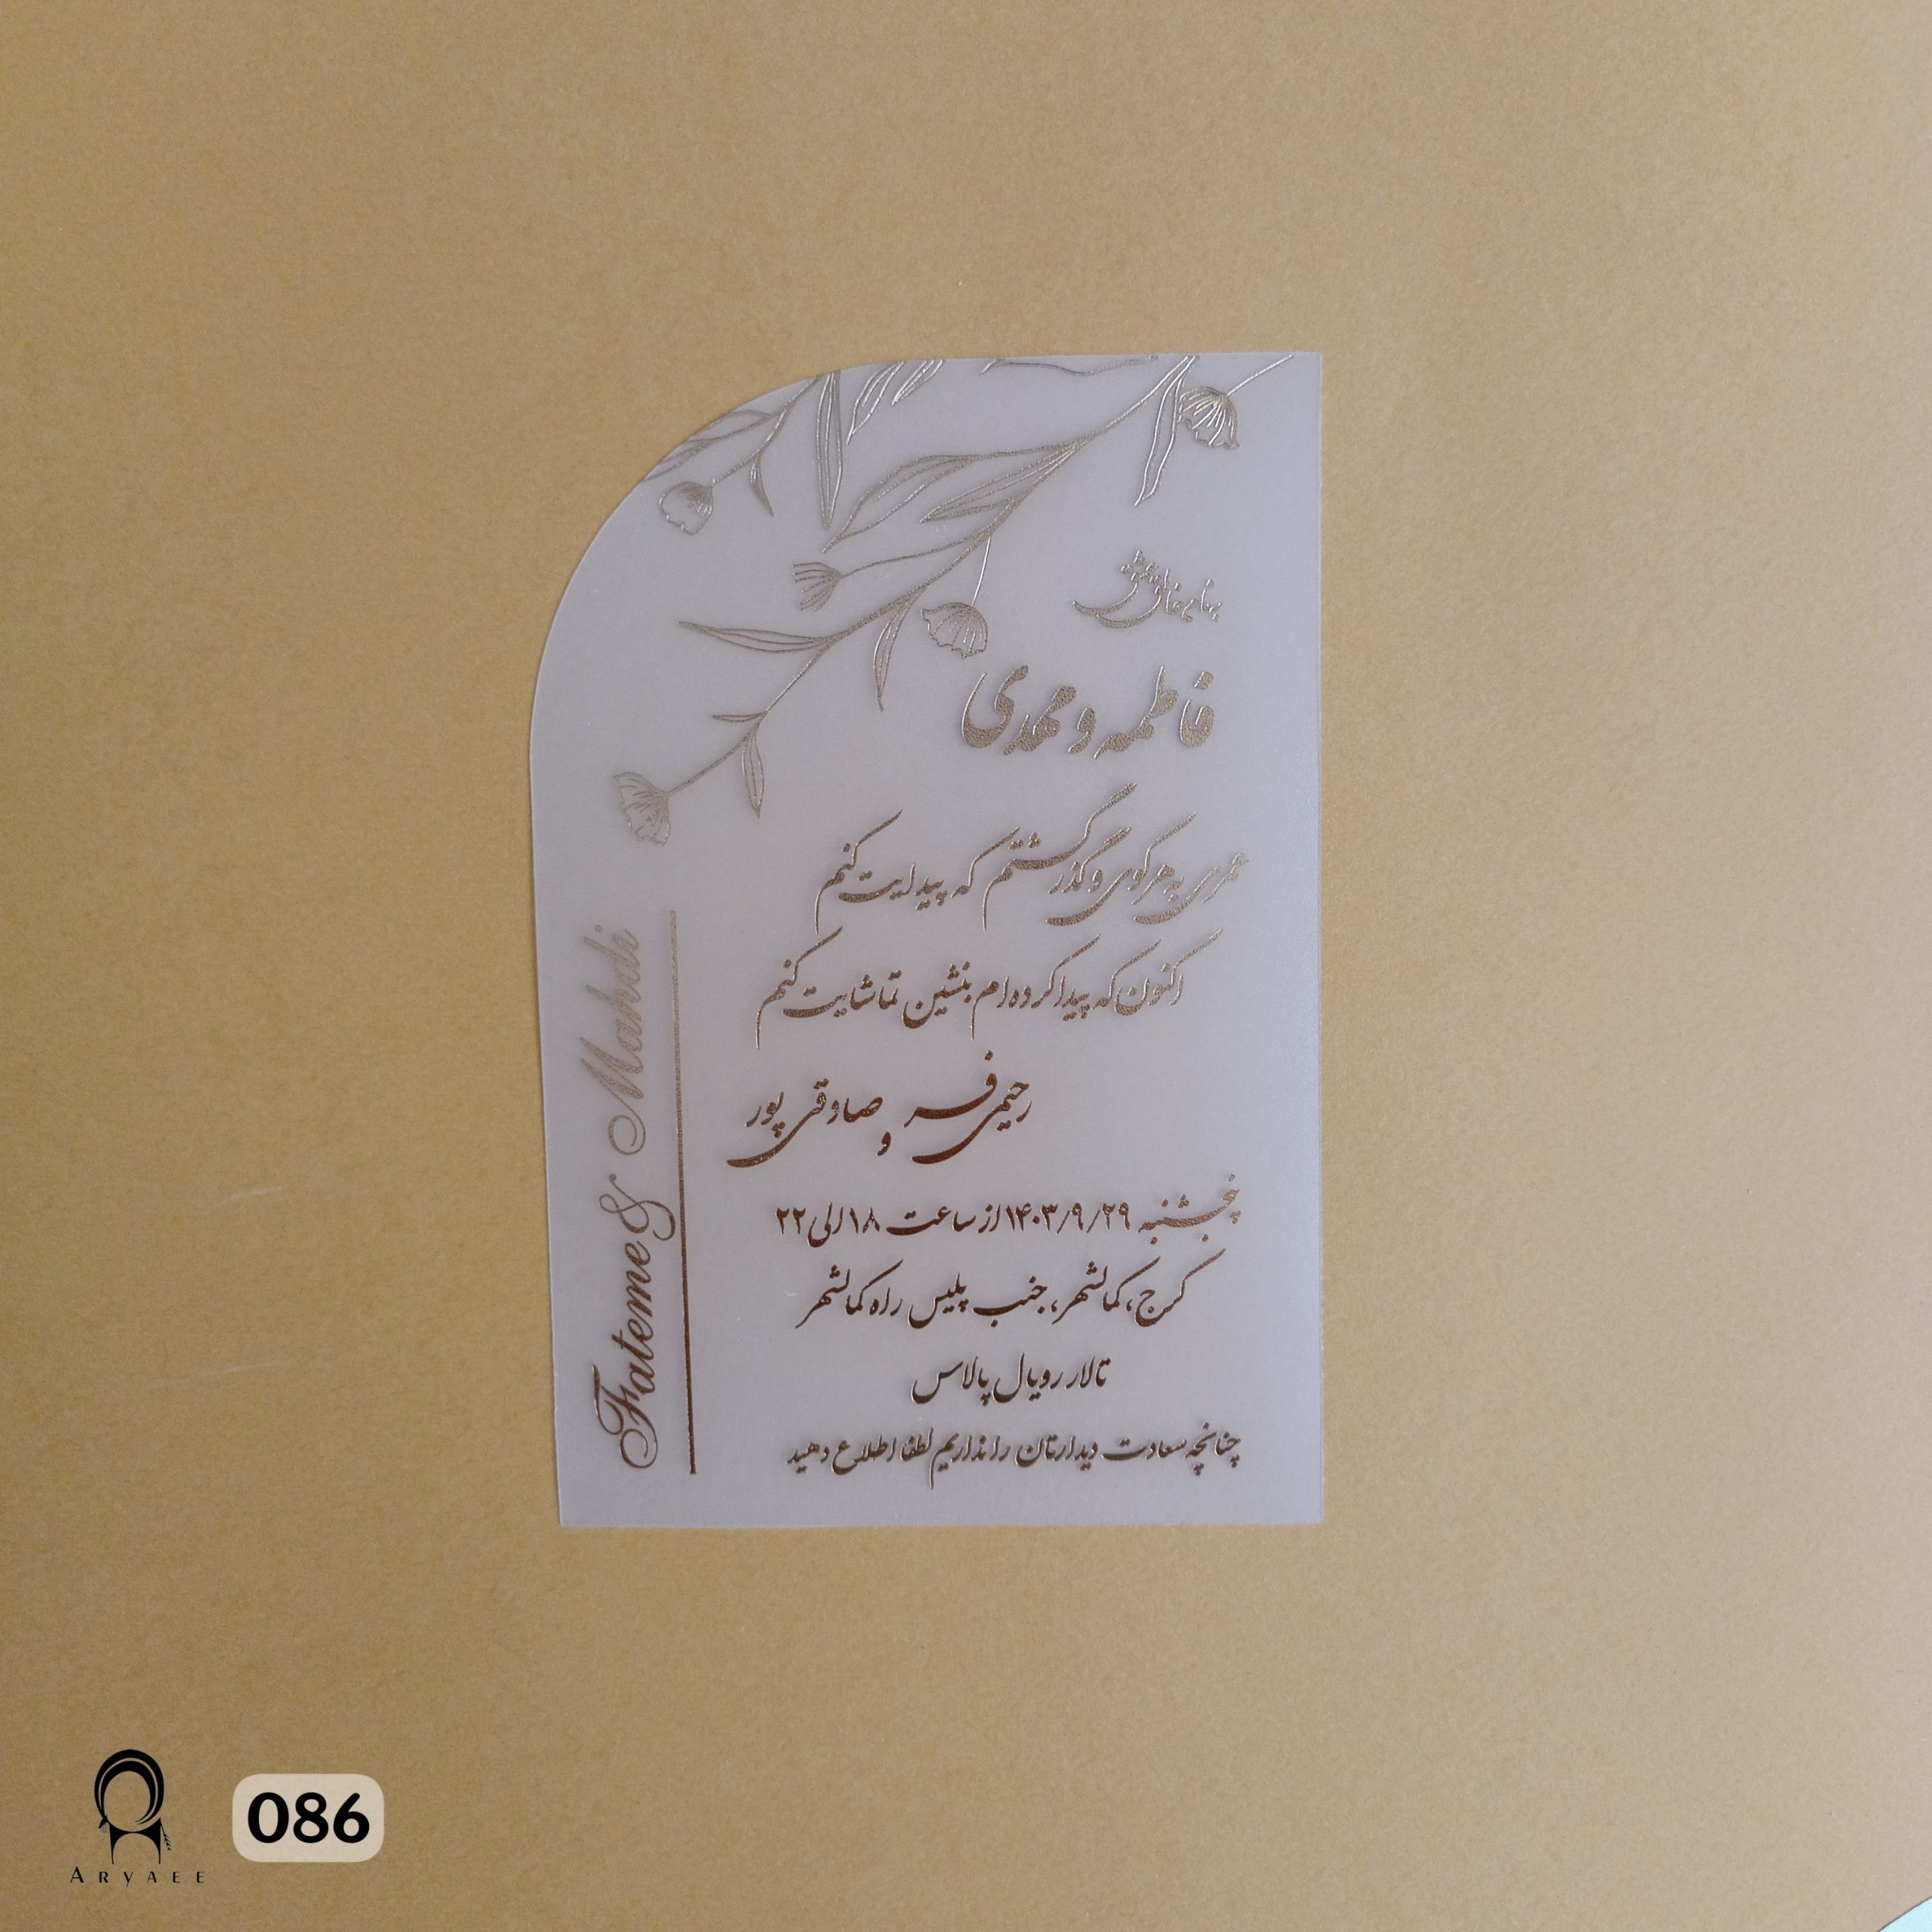 بنام خالق عشق
فاطمه و مهدی
عمری به هر کوی و گذر گشتم که پیدایت کنم
اکنون که پیدا کرده ام بنشین تماشایت کنم
رحیمی فر و صادقی پور
پنجشنبه ۱۴۰۳/۹/۲۹ از ساعت ۱۸ الی ۲۲
کرج، کمالشهر، جنب پلیس راه کمالشهر
تالار رویال پالاس
چنانچه سعادت دیدارتان را نداریم لطفا اطلاع دهید
Fateme & Mahdi
ARYAEE
086